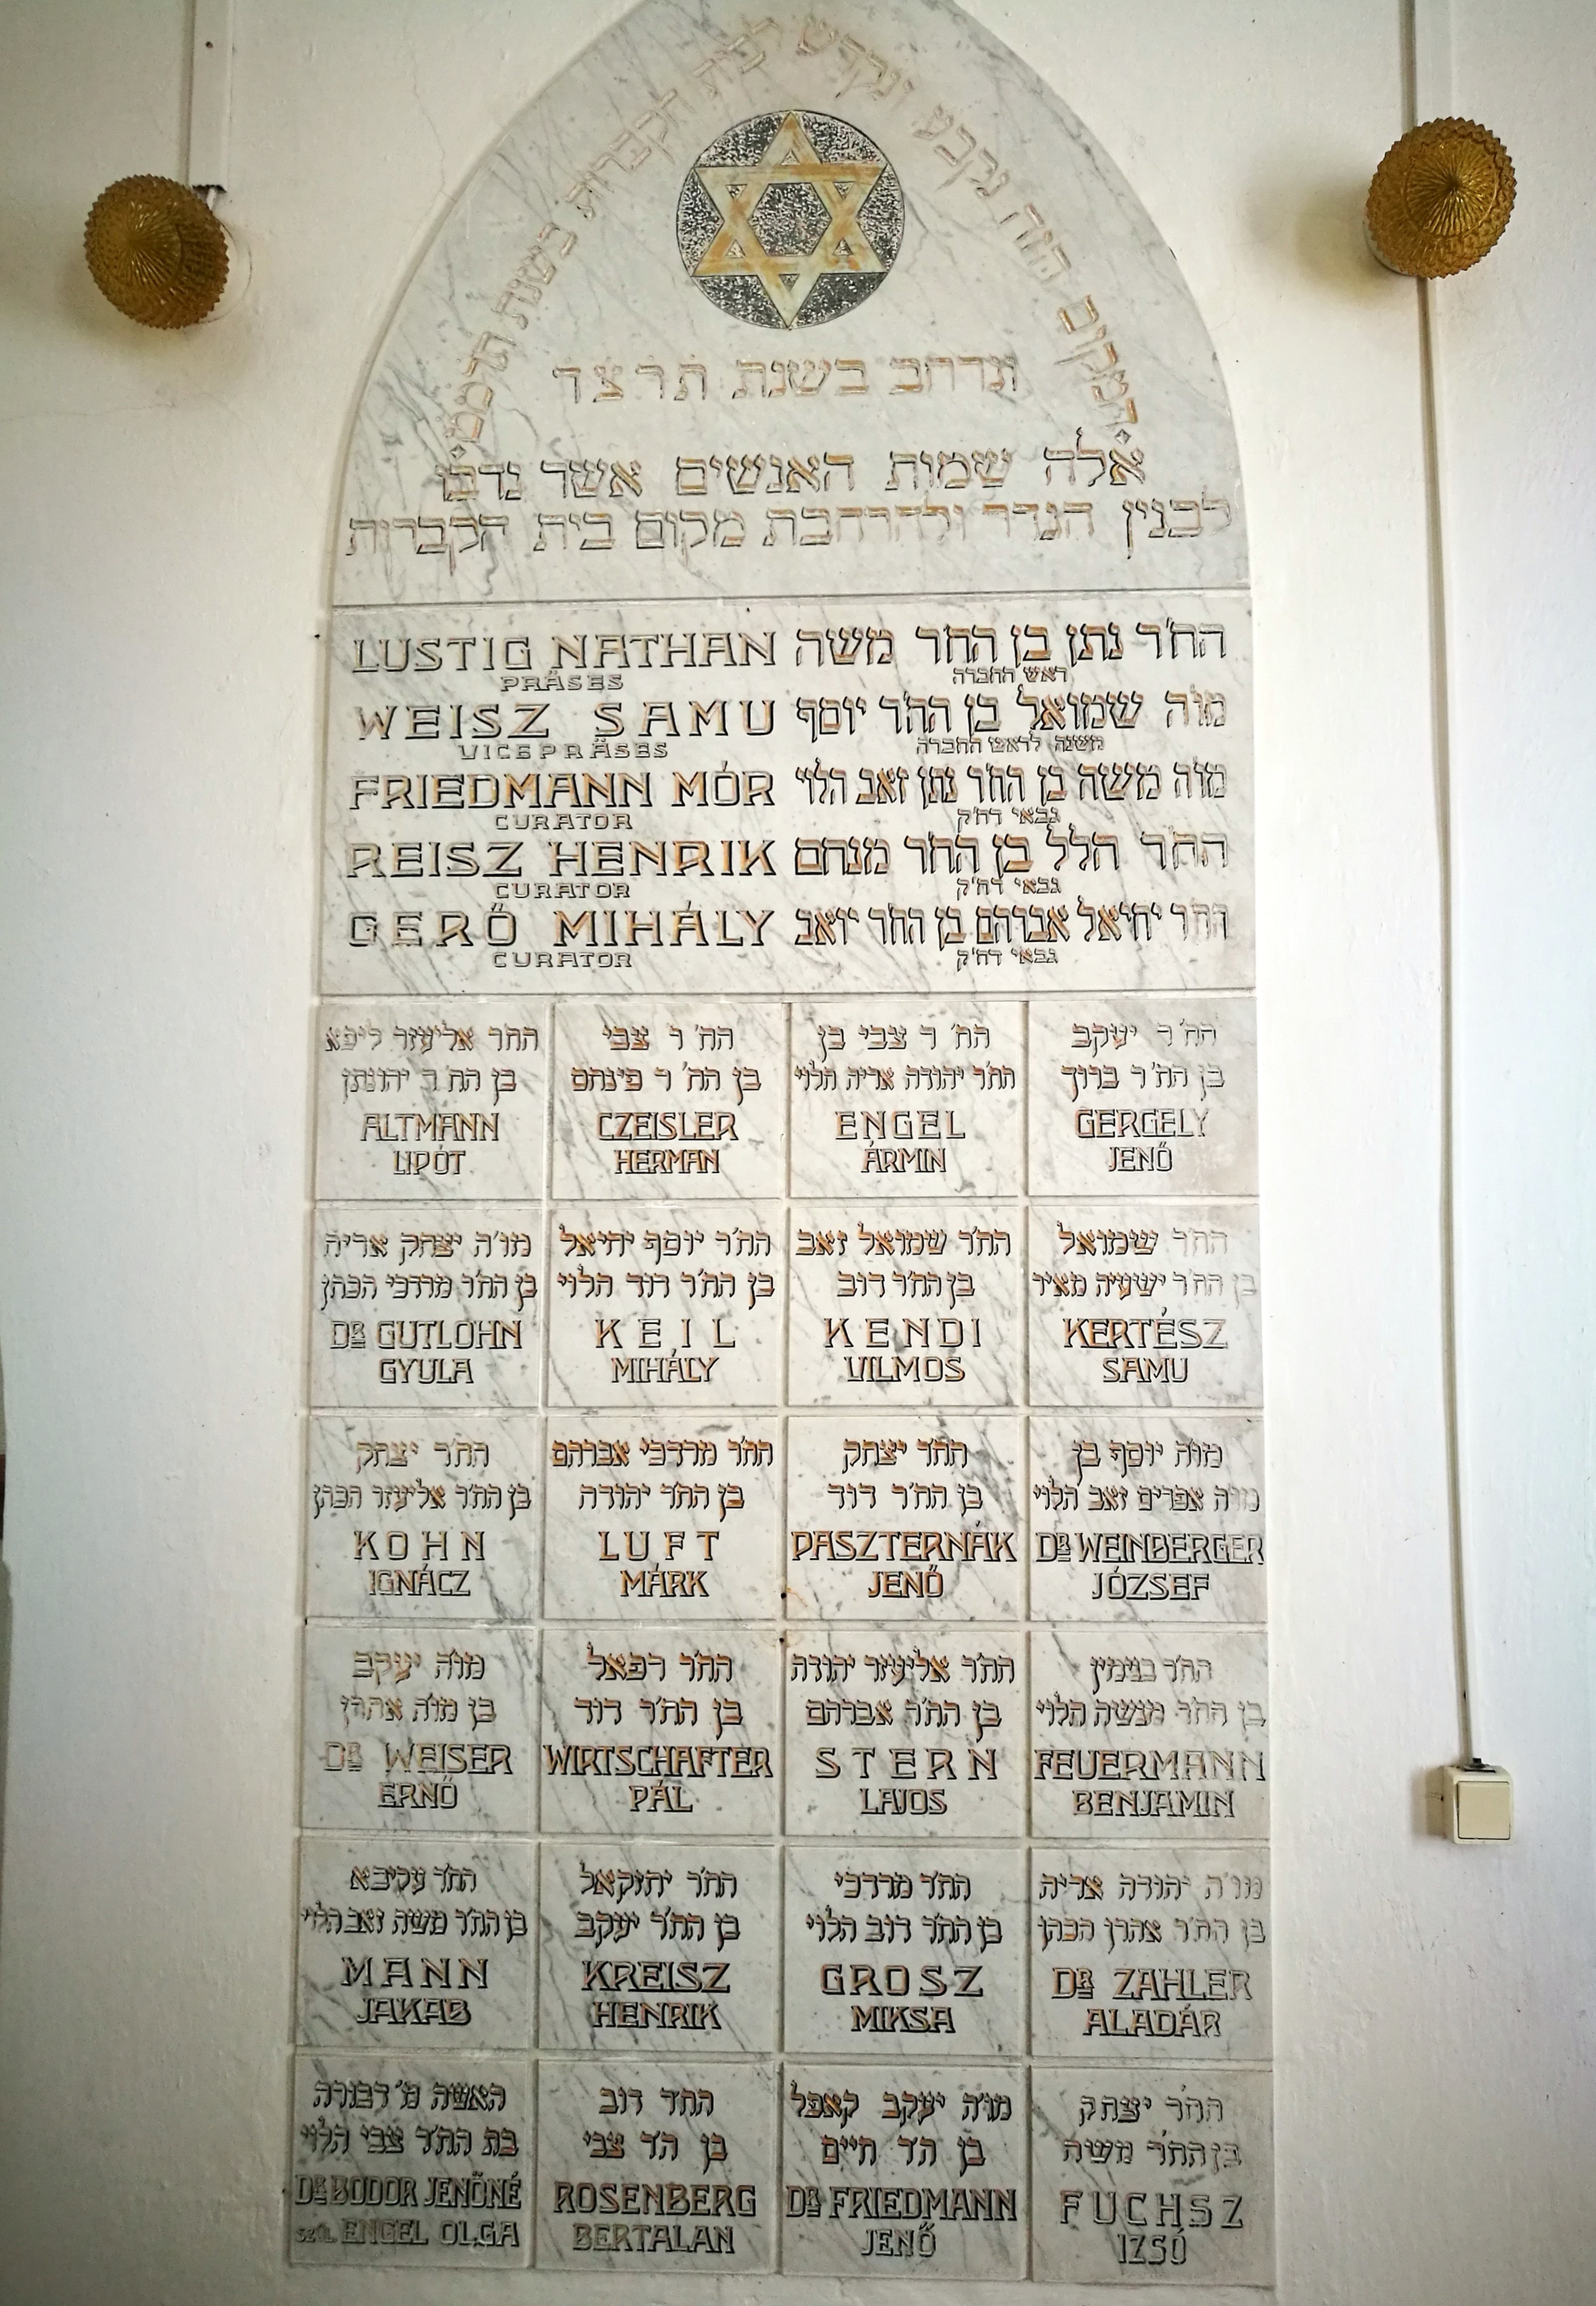 המקום הזה נקבע ונקדש לבית הקברות בשנת
ונרחב בשנת תרצד
אלה שמות האנשים אשר נדבו
לבנין הגדר ולהרחבת מקום בית הקברות
LUSTIG NATHAN החר נתן בן החר משה
PRÄSES ראש החברה
WEISZ SAMU מוה שמואל בן החר יוסף
VICEPRÄSES משנה לראש החברה
FRIEDMANN MÓR מוה משה בן החר נתן זאב הלוי
CURATOR גבאי דח'ק
REISZ HENRIK החר הלל בן החר מנחם
CURATOR גבאי דח'ק
GERŐ MIHÁLY החר יחיאל אברהם בן החר יואב
CURATOR גבאי דח'ק
החר אליעזר ליפא
בן הח'ר יהונתן
ALTMANN
LIPÓT
הח'ר צבי
בן הח'ר פינחס
CZEISLER
HERMAN
הח'ר צבי בן
החר יהודה אריה הלוי
ENGEL
ÁRMIN
הח'ר יעקב
בן הח'ר ברוך
GERGELY
JENŐ
מו'ה יצחק אריה
בן הח'ר מרדכי הכהן
DR GUTLOHN
GYULA
הח'ר יוסף יחיאל
בן הח'ר דוד הלוי
KEIL
MIHÁLY
הח'ר שמואל זאב
בן הח'ר דוב
KENDI
VILMOS
הח'ר שמואל
בן הח'ר ישעיה מאיר
KERTÉSZ
SAMU
הח'ר יצחק
בן הח'ר אליעזר הכהן
KOHN
IGNÁCZ
החר מרדכי אברהם
בן הח'ר יהודה
LUFT
MÁRK
החר יצחק
בן הח'ר דוד
PASZTERNÁK
JENŐ
מוה יוסף בן
מו'ה אפרים זאב הלוי
DR WEINBERGER
JÓZSEF
מוה יעקב
בן מוה אהרן
DR WEISER
ERNŐ
החר רפאל
בן הח'ר דוד
WIRTSCHAFTER
PÁL
החר אליעזר יהודה
בן הח'ר אברהם
STERN
LAJOS
הח'ר בנימין
בן הח'ר מנשה הלוי
FEUERMANN
BENJAMIN
החר עקיבא
בן החר משה זאב הלוי
MANN
JAKAB
החר יחזקאל
בן הח'ר יעקב
KREISZ
HENRIK
החר מרדכי
בן החר דוב הלוי
GROSZ
MIKSA
מו'ה יהודה אריה
בן הח'ר אהרן הכהן
DR ZAHLER
ALADÁR
האשה מ' דבורה
בת החר צבי הלוי
DR BODOR JENŐNÉ
SZÜL. ENGEL OLGA
החר דוב
בן הר צבי
ROSENBERG
BERTALAN
מוה יעקב קאפל
בן הר חיים
DR FRIEDMANN
JENŐ
החר יצחק
בן החר משה
FUCHSZ
IZSÓ